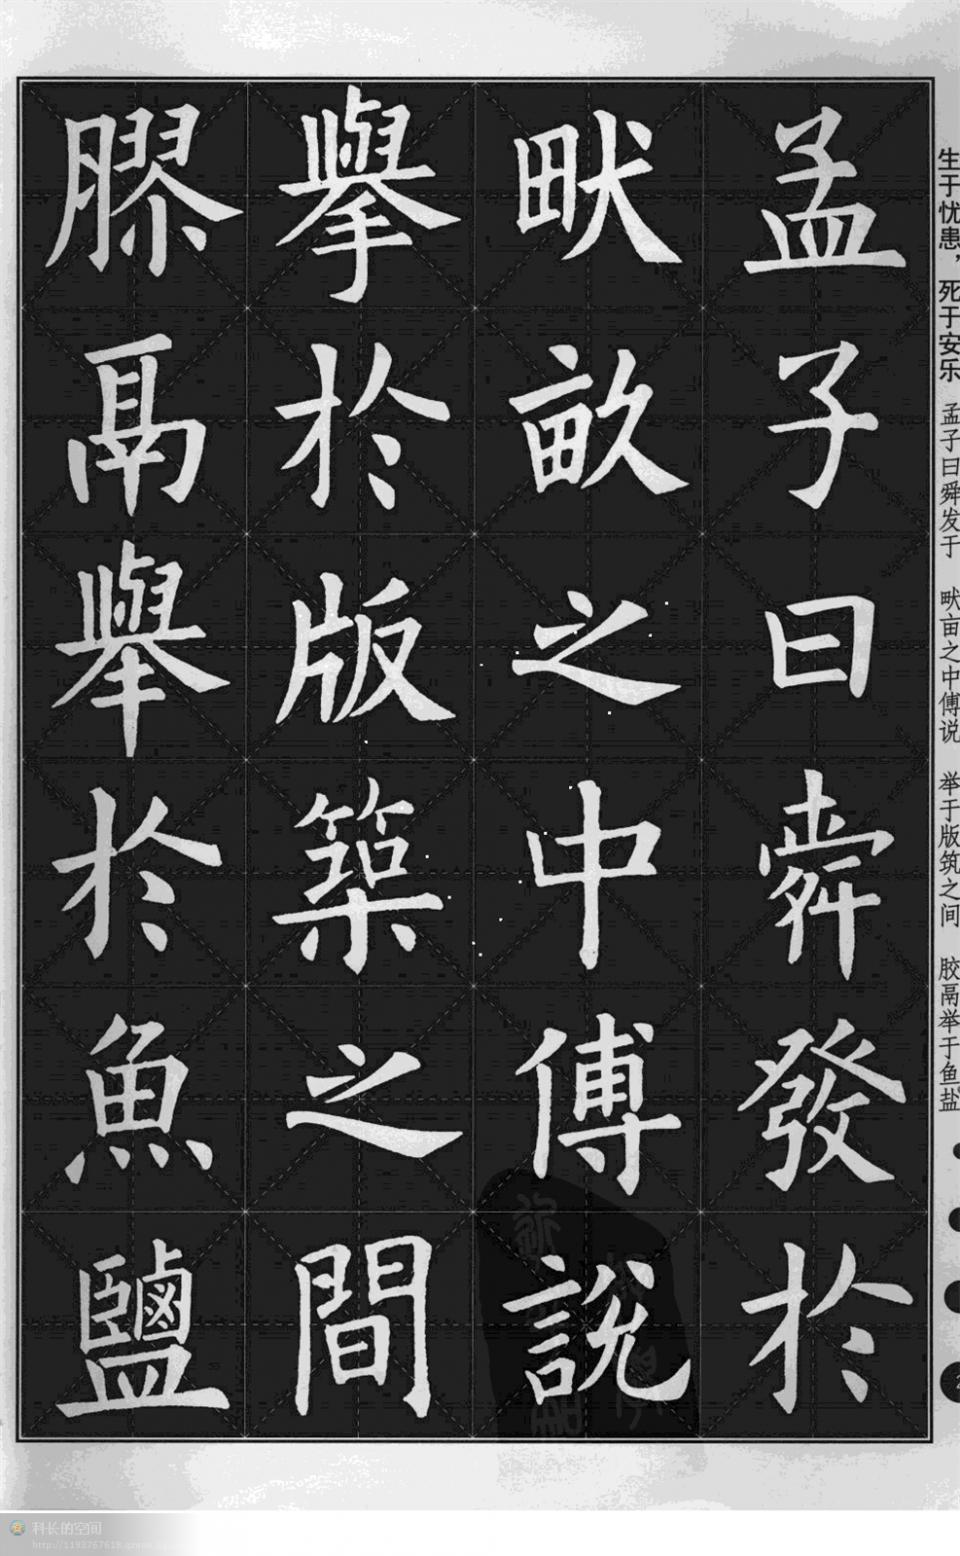 生于忧患，死于安乐 孟子曰舜发于 畎亩之中傅说 举于版筑之间 胶鬲举于鱼盐
孟子曰舜發於
畎畝之中傅說
舉於版築之間
膠鬲舉於魚鹽
科长的空间